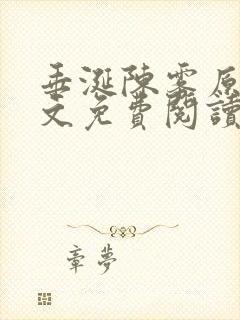 垂涎陳霧原
文免費閱讀
章夢